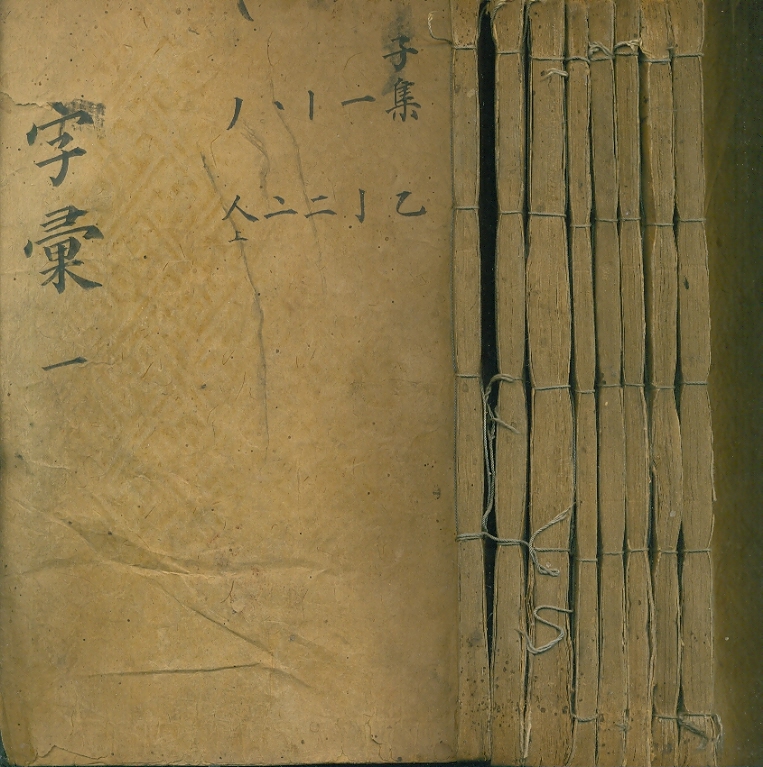 子集
一丨丶丿
乙亅二亠人上
字彙 一